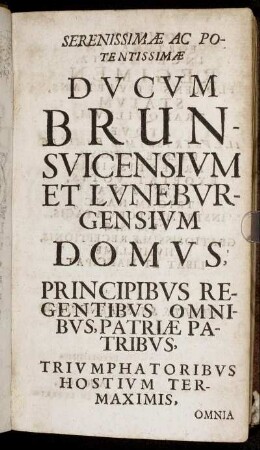 SERENISSIMÆ AC PO-
TENTISSIMÆ
DVCVM
BRUN-
SVICENSIVM
ET LVNEBVR-
GENSIVM
DOMVS,
PRINCIPIBVS RE-
GENTIBVS OMNI-
BVS, PATRIÆ PA-
TRIBVS,
TRIVMPHATORIBVS
HOSTIVM TER-
MAXIMIS,
OMNIA